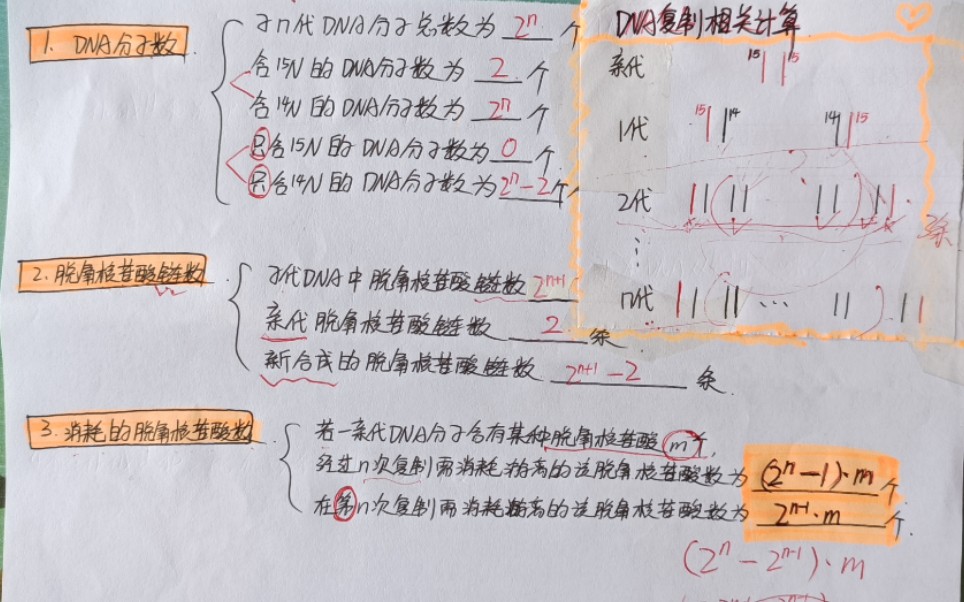 1. DNA分子数
子n代DNA分子总数为 2ⁿ 个
含¹⁵N的DNA分子数为 2 个
含¹⁴N的DNA分子数为 2ⁿ 个
只含¹⁵N的DNA分子数为 0 个
只含¹⁴N的DNA分子数为 2ⁿ-2 个
DNA复制相关计算
亲代 15 15
1代 15 14 14 15
2代
3条
⋮
n代 ...
2. 脱氧核苷酸链数
子代DNA中脱氧核苷酸链数 2ⁿ⁺¹
亲代脱氧核苷酸链数 2 条
新合成的脱氧核苷酸链数 2ⁿ⁺¹-2 条
3. 消耗的脱氧核苷酸数
若一亲代DNA分子含有某种脱氧核苷酸m个,
经过n次复制需消耗游离的该脱氧核苷酸数为 (2ⁿ-1)·m 个
在第n次复制需消耗游离的该脱氧核苷酸数为 2ⁿ⁻¹·m 个.
(2ⁿ-2ⁿ⁻¹)·m